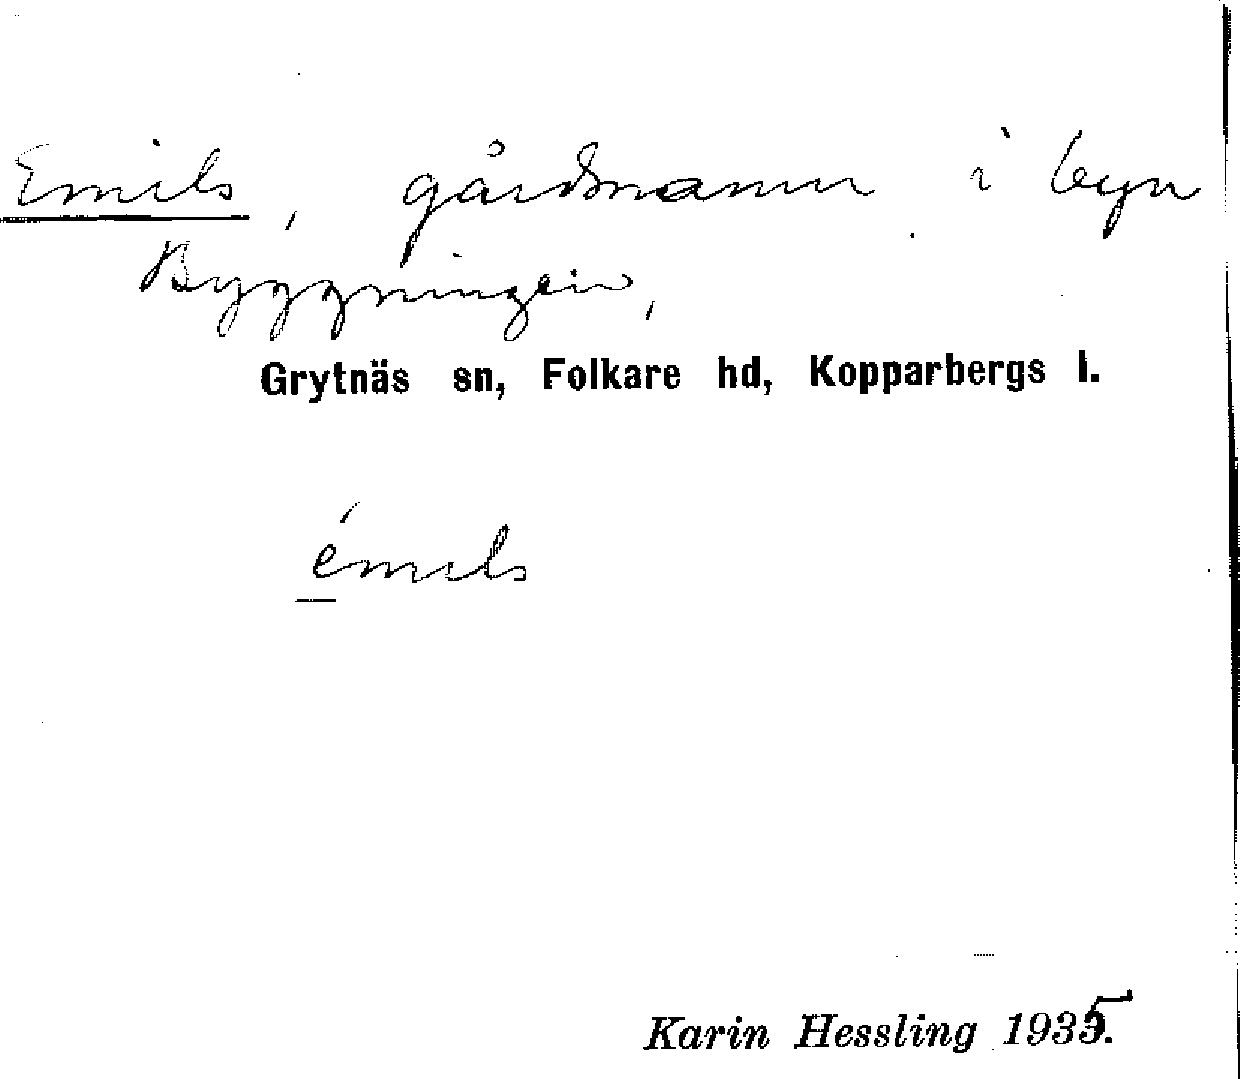 Emils, gårdsnamn i byn
Byggningen,
Grytnäs sn, Folkare hd, Kopparbergs l.
émils
Karin Hessling 1935.